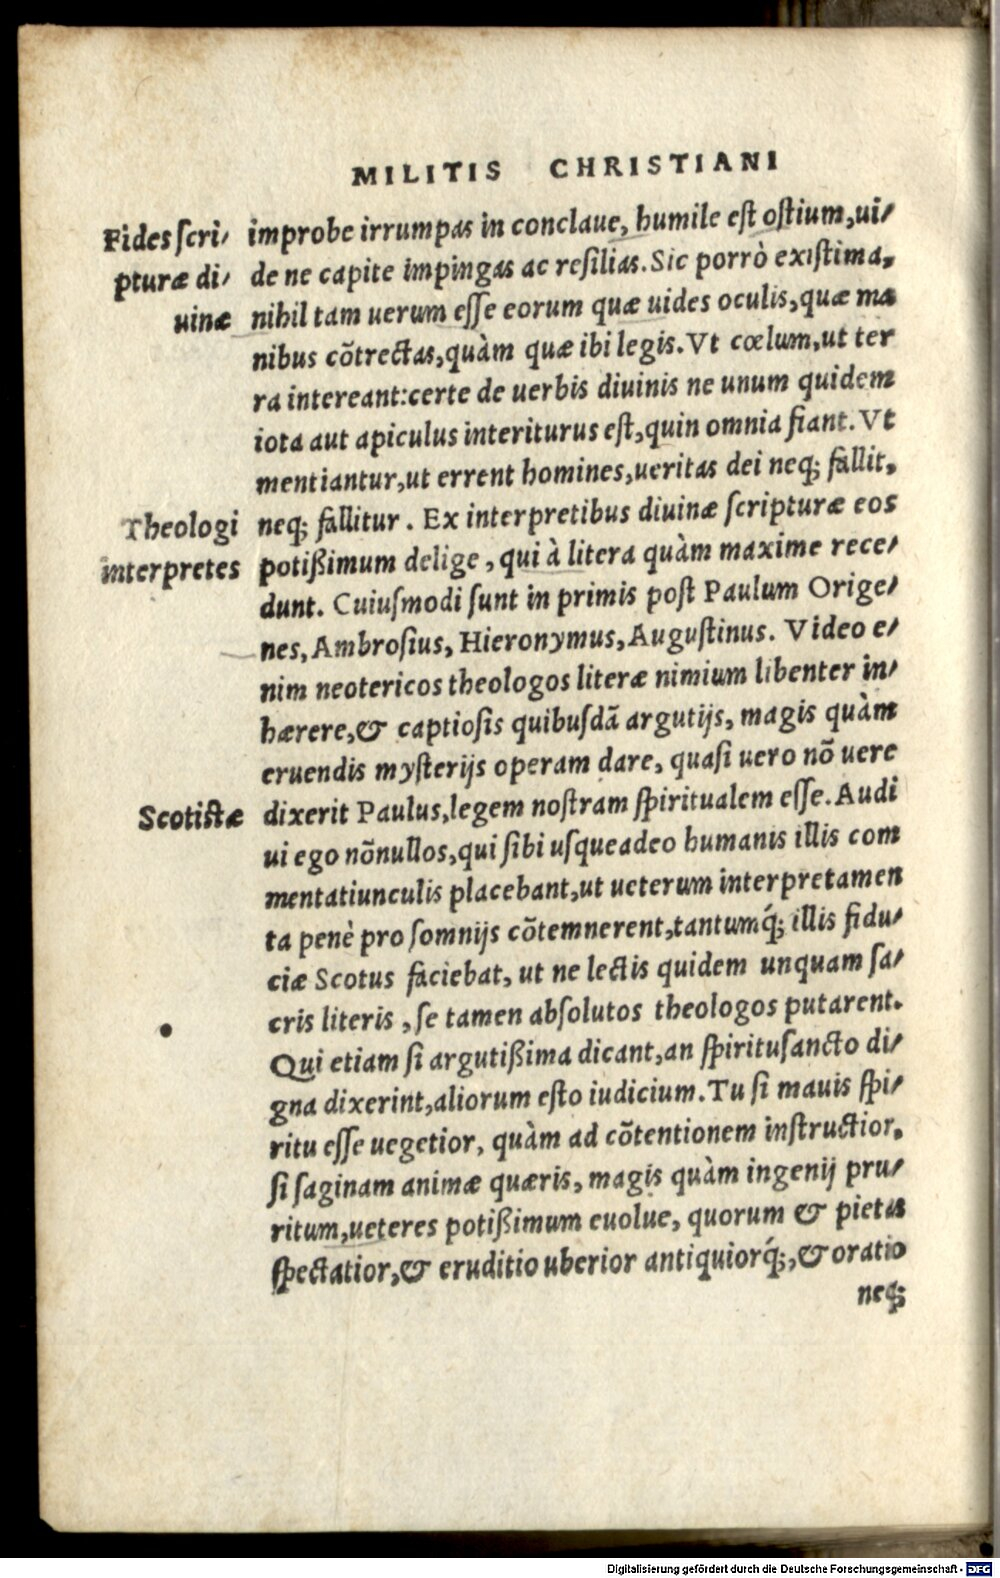 MILITIS CHRISTIANI
Fides scri/
pturæ di/
uinæ
improbe irrumpas in conclaue, humile est ostium,ui/
de ne capite impingas ac resilias. Sic porrò existima,
nihil tam uerum esse eorum quæ uides oculis,quæ ma
nibus cõtrectas,quàm quæ ibi legis. Vt cœlum,ut ter
ra intereant:certe de uerbis diuinis ne unum quidem
iota aut apiculus interiturus est,quin omnia fiant. Vt
mentiantur,ut errent homines,ueritas dei neq; fallit,
Theologi
interpretes
neq; fallitur. Ex interpretibus diuinæ scripturæ eos
potißimum delige, qui à litera quàm maxime rece/
dunt. Cuiusmodi sunt in primis post Paulum Orige/
nes, Ambrosius, Hieronymus, Augustinus. Video e/
nim neotericos theologos literæ nimium libenter in/
hærere,& captiosis quibusdã argutijs, magis quàm
eruendis mysterijs operam dare, quasi uero nõ uere
Scotistæ
dixerit Paulus,legem nostram spiritualem esse. Audi
ui ego nõnullos,qui sibi usqueadeo humanis illis com
mentatiunculis placebant,ut ueterum interpretamen
ta penè pro somnijs cõtemnerent,tantumq́; illis fidu/
ciæ Scotus faciebat, ut ne lectis quidem unquam sa/
cris literis, se tamen absolutos theologos putarent.
Qui etiam si argutißima dicant,an spiritusancto di/
gna dixerint,aliorum esto iudicium. Tu si mauis spi/
ritu esse uegetior, quàm ad cõtentionem instructior,
si saginam animæ quæris, magis quàm ingenij pru/
ritum,ueteres potißimum euolue, quorum & pietas
spectatior,& eruditio uberior antiquiorq́;,& oratio
neq;
Digitalisierung gefördert durch die Deutsche Forschungsgemeinschaft - DFG